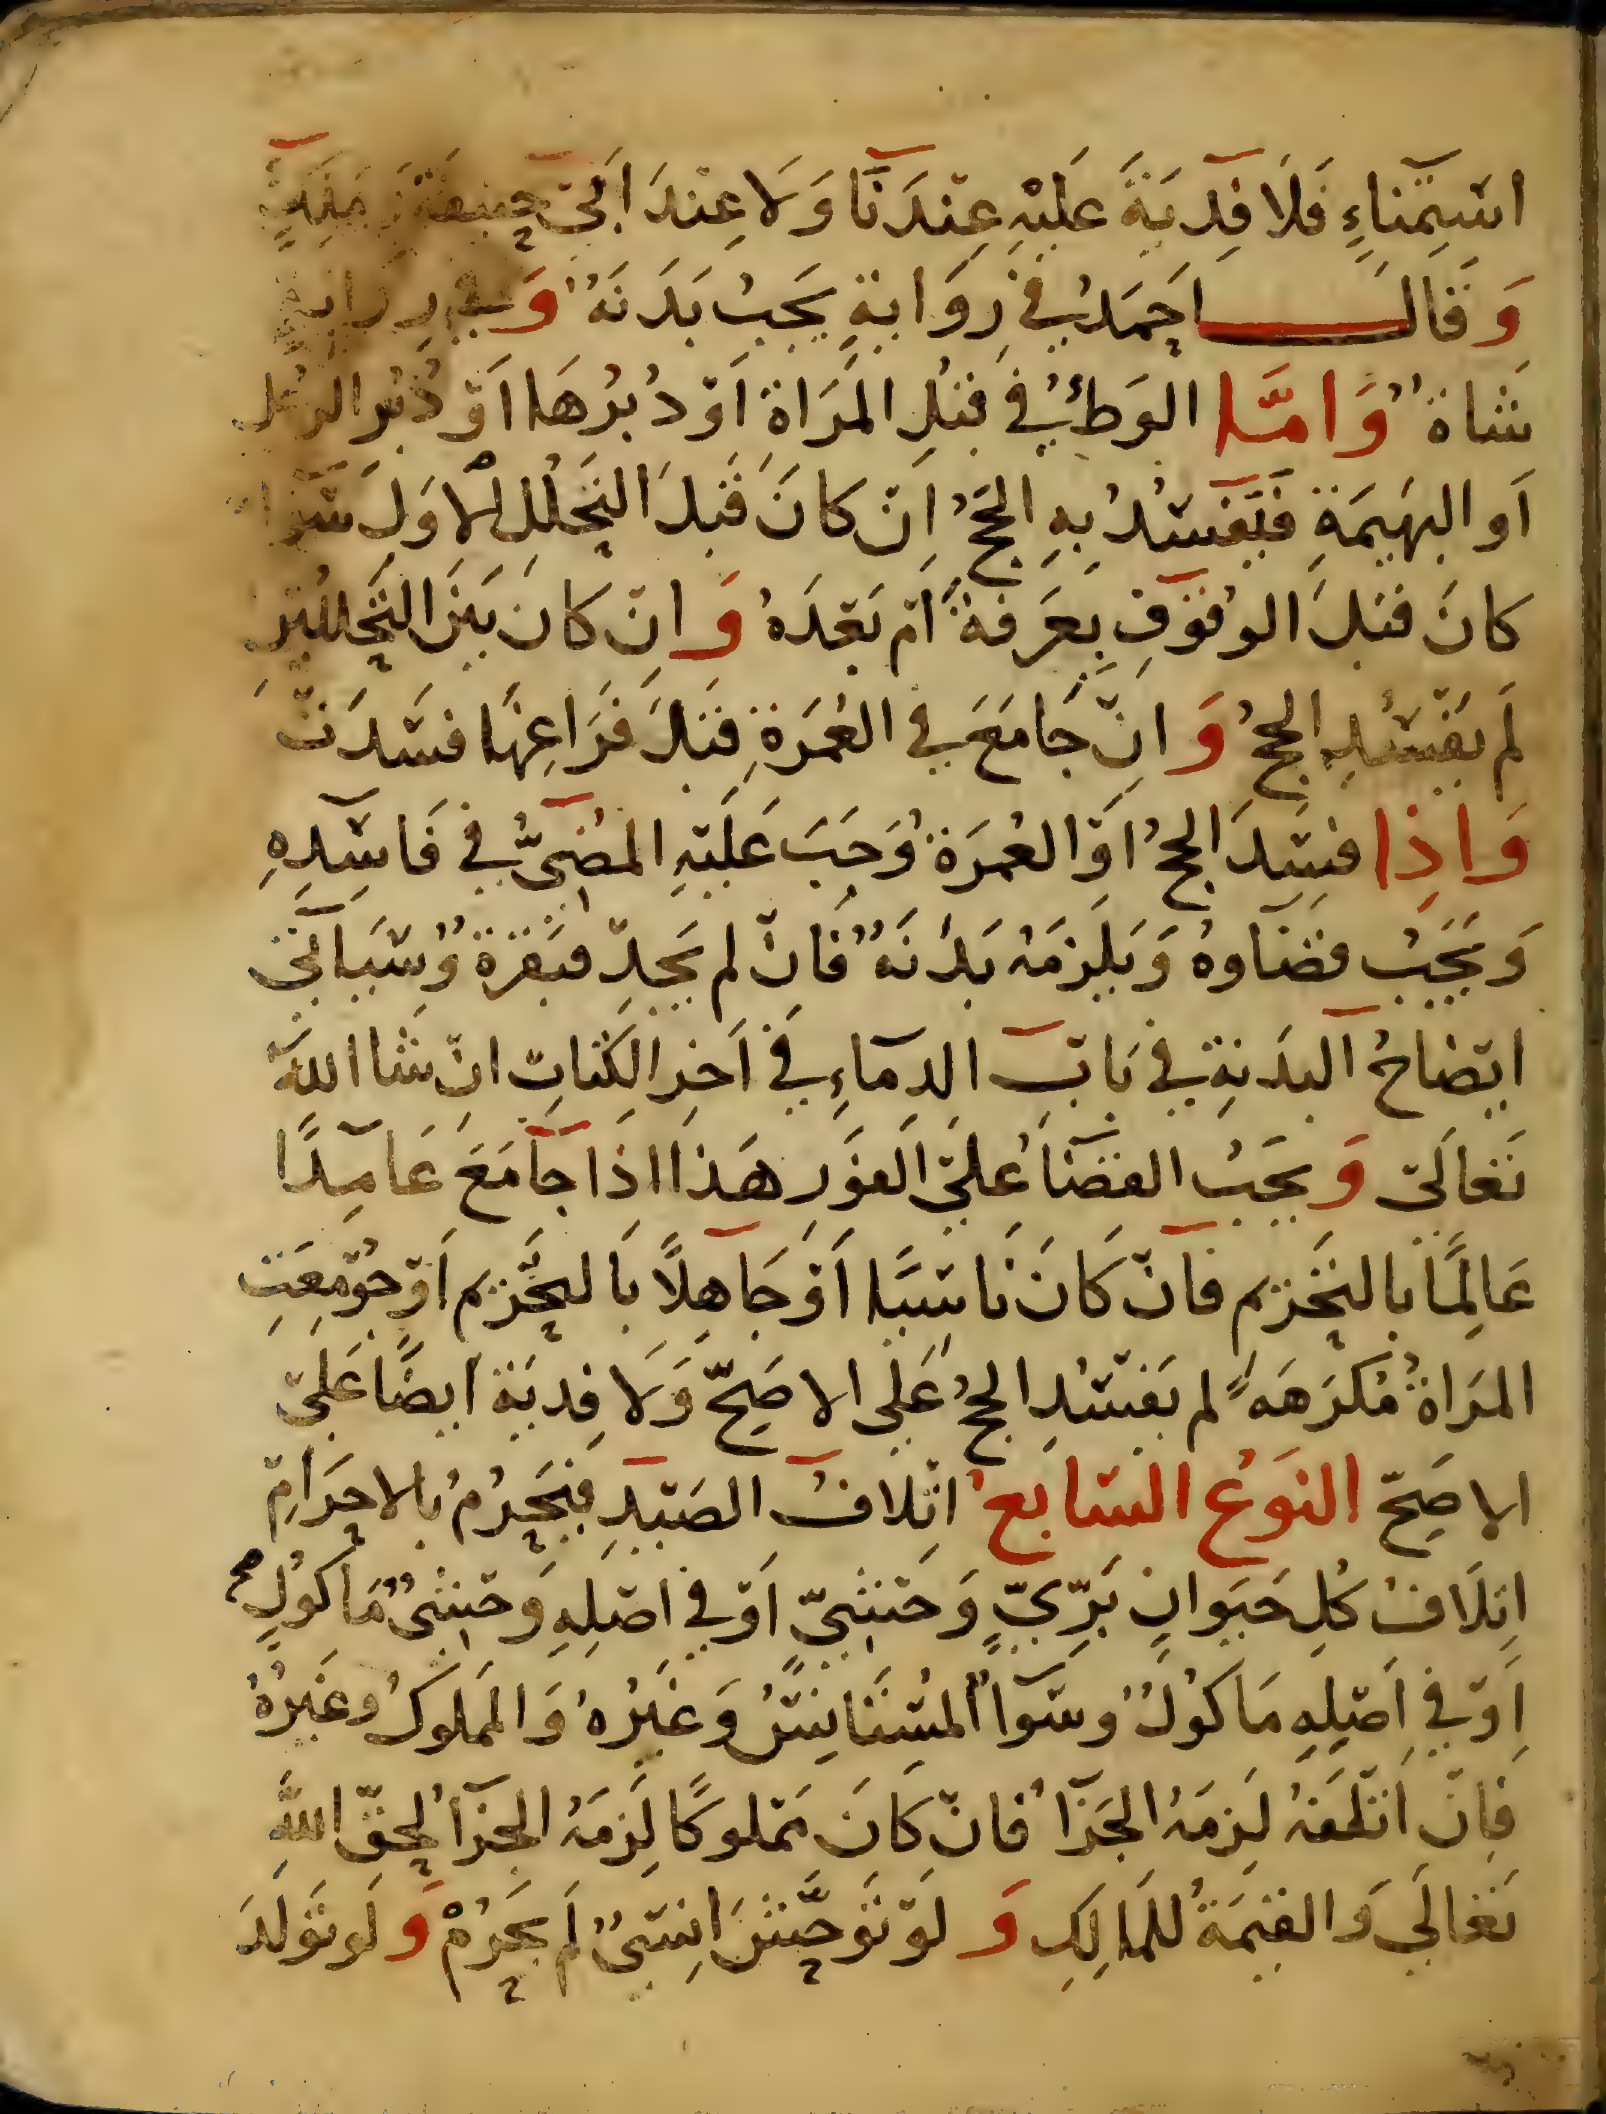 اسْتِمْنَاءٍ فَلَا فِدْيَةَ عَلَيْهِ عِنْدَنَا وَلَا عِنْدَ ابي حنيفة ومالك
وَقَالَ احْمَدُ فِي رِوَايَةٍ يَجِبُ بَدَنَةٌ وَفي رواية
شَاةٌ وَامَّا الوَطْئُ فِي قُبُلِ المَرْاةِ اَوْ دُبُرِهَا اَوْ دُبُرِ الرجل
اَوِ البَهِيمَةِ فَيَفْسُدُ بِهِ الحَجُّ اِنْ كَانَ قَبْلَ التَّحَلُّلِ الْاوَلِ سَوَا
كَانَ قَبْلَ الوُقُوْفِ بِعَرَفَةَ اَمْ بَعْدَهُ وَانْ كَانَ بَيْنَ التَّحَلُّلَيْنِ
لَمْ يَفْسُدِ الحَجُّ وَانْ جَامَعَ فِي العُمْرَةِ قَبْلَ فَرَاغِهَا فَسَدَتْ
وَاذِا فَسَدَ الحَجُّ اَوِ العُمْرَةُ وَجَبَ عَلَيْهِ المُضِيُّ فِي فَاسِدِهِ
وَيَجِبُ قَضَاوهُ وَيَلْزَمُهُ بَدَنَةٌ فَانْ لم يَجِدْ فَبَقَرَةٌ وَسَيَاتي
ايْضَاحُ البَدَنَةِ فِي بَابِ الدِمَاءِ فِي اَخِرِ الكِتَابِ انْ شَا اللهُ
تَعَالَى وَيَجِبُ القَضَاءُ عَلَى الفَوْرِ هَذَا اذَا جَامَعَ عَامِدًا
عَالِمًا بالتَّحْرِيمِ فَانْ كَانَ نَاسِيًا اَوْ جَاهِلًا بَالتَّحْرِيمِ اَوْ جُوْمِعَتِ
المَرْاةُ مُكْرَهَةً لم يَفْسُدِ الحَجُّ عَلى الاصَحّ وَلَا فِدْيَةَ ايْضًا عَلَى
الاصَحّ النَوْعُ السَّابِعُ اتْلَافُ الصَيْدِ فَيَحْرُمُ بِالاحْرَامِ
اتِلَافُ كُلِ حَيَوانٍ بَرِّيٍّ وَحْشِيّ اَوْ فِي اصْلِهِ وَحْشِيٌّ مَاكُولٍ صح
اَوْ فِي اَصْلِهِ مَاكُولٌ وسَوَا المُسْتَانِسُ وَغَيْرُهُ وَالمَملُوكُ وغَيْرُهُ
فَانْ اَتْلَفَهُ لَزِمَهُ الجَزَا فانْ كَانَ مَمْلوكًا لَزِمَهُ الجَزَا لِحَقِّ اللهِ
تَعَالَي وَالقِيْمَةُ لِلمَالِكِ وَلَوْ تَوَحَّشَ انِسْيٌّ لَمْ يَحْرُمْ وَلَو تَوَلَدَ